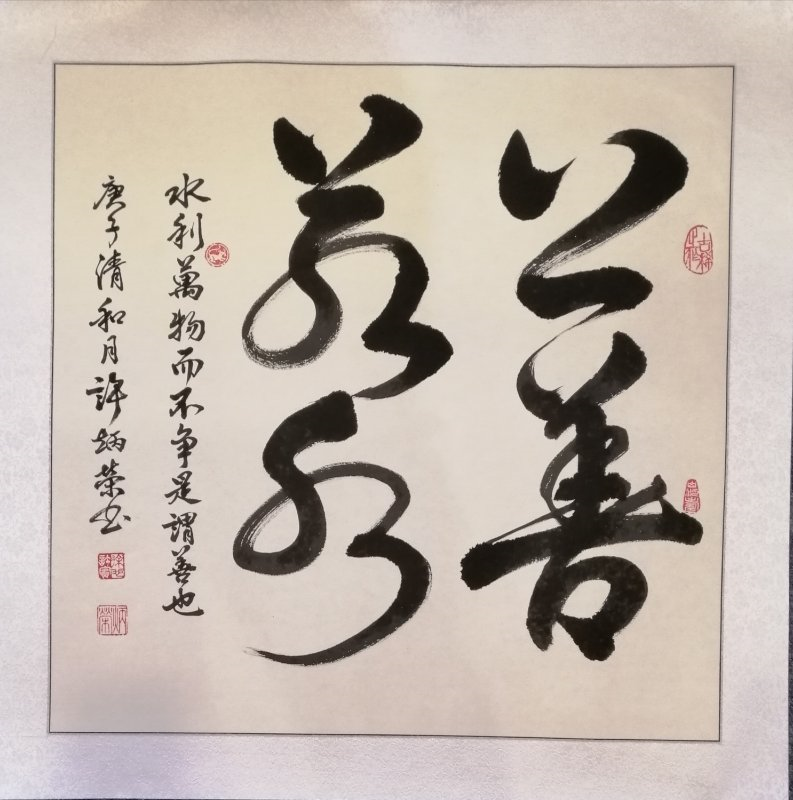 上善
若水
水利萬物而不争是謂善也
庚子清和月許炳榮书